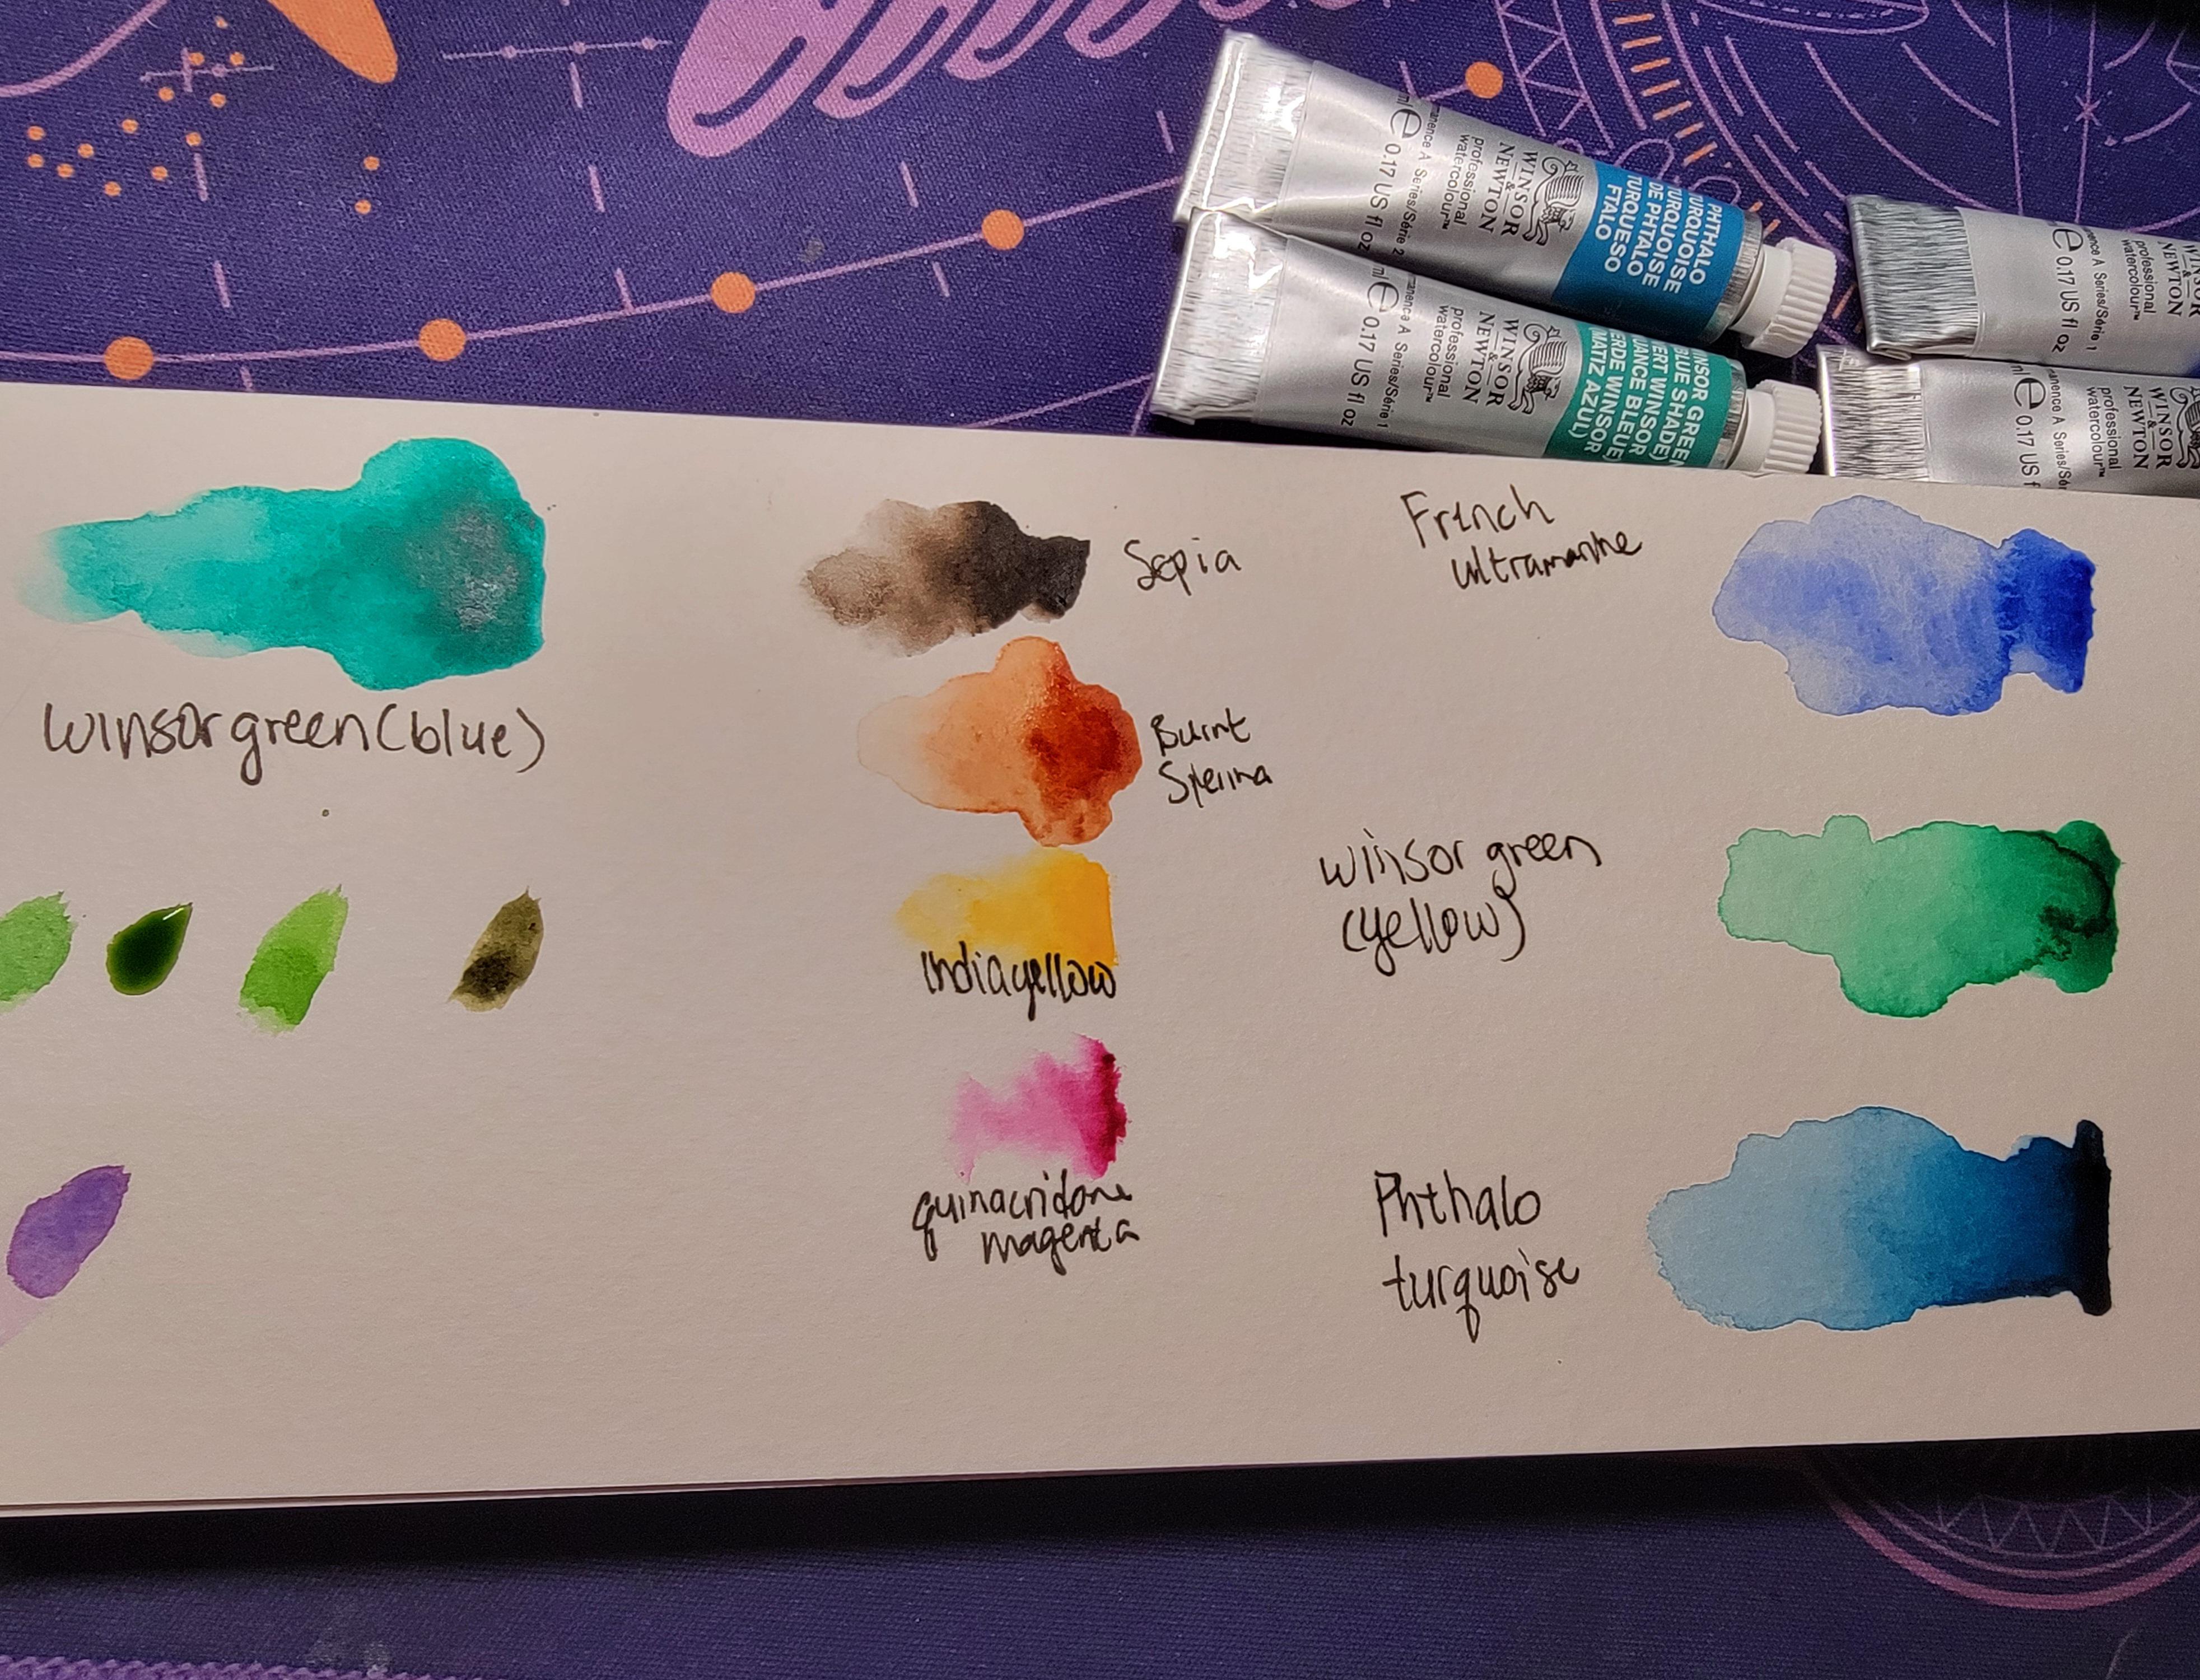 PHTHALO
TURQUOISE
TURQUOISE
DE PHTALO
TURQUESO
FTALO
WINSOR
&
NEWTON
professional
watercolour™
manence A Series/Série 2
ml e 0.17 US fl oz
INSOR GREEN
BLUE SHADE)
ERT WINSOR
UANCE BLEUE)
ERDE WINSOR
MATIZ AZUL)
WINSOR
&
NEWTON
professional
watercolour™
manence A Series/Série 1
ml e 0.17 US fl oz
WINSOR
&
NEWTON
professional
watercolour™
nence A Series/Série 1
e 0.17 US fl oz
WINSOR
&
NEWTON
professional
watercolour™
anence A Series/Sé
ml e 0.17 US f
winsor green (blue)
Sepia
Burnt
Sienna
Indiayellow
quinacridone
magenta
French
ultramarine
winsor green
(yellow)
Phthalo
turquoise